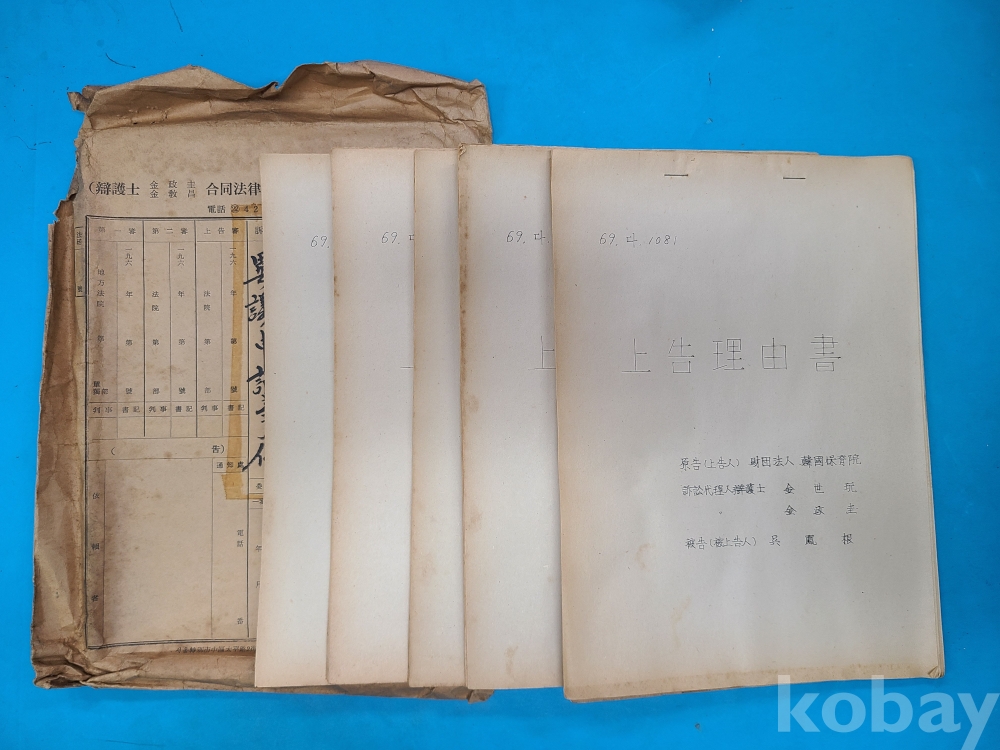 (辯護士 金政圭 金敎昌 合同法律
電話
第一審
一九六 年 第 號
地方法院
判事 書記
第二審
一九六 年 第 號
法院 第 部
判事 書記
上告審
一九六 年 第 號
法院 第 部
判事 書記
訴
( 告)
通知處
電話 番
依賴者
69.
69. 다
69. 다.
69. 다. 1081
上
上告理由書
原告(上告人) 財団法人 韓國保育院
訴訟代理人辯護士 金世玩
金政圭
被告(被上告人) 吳鳳根
kobay